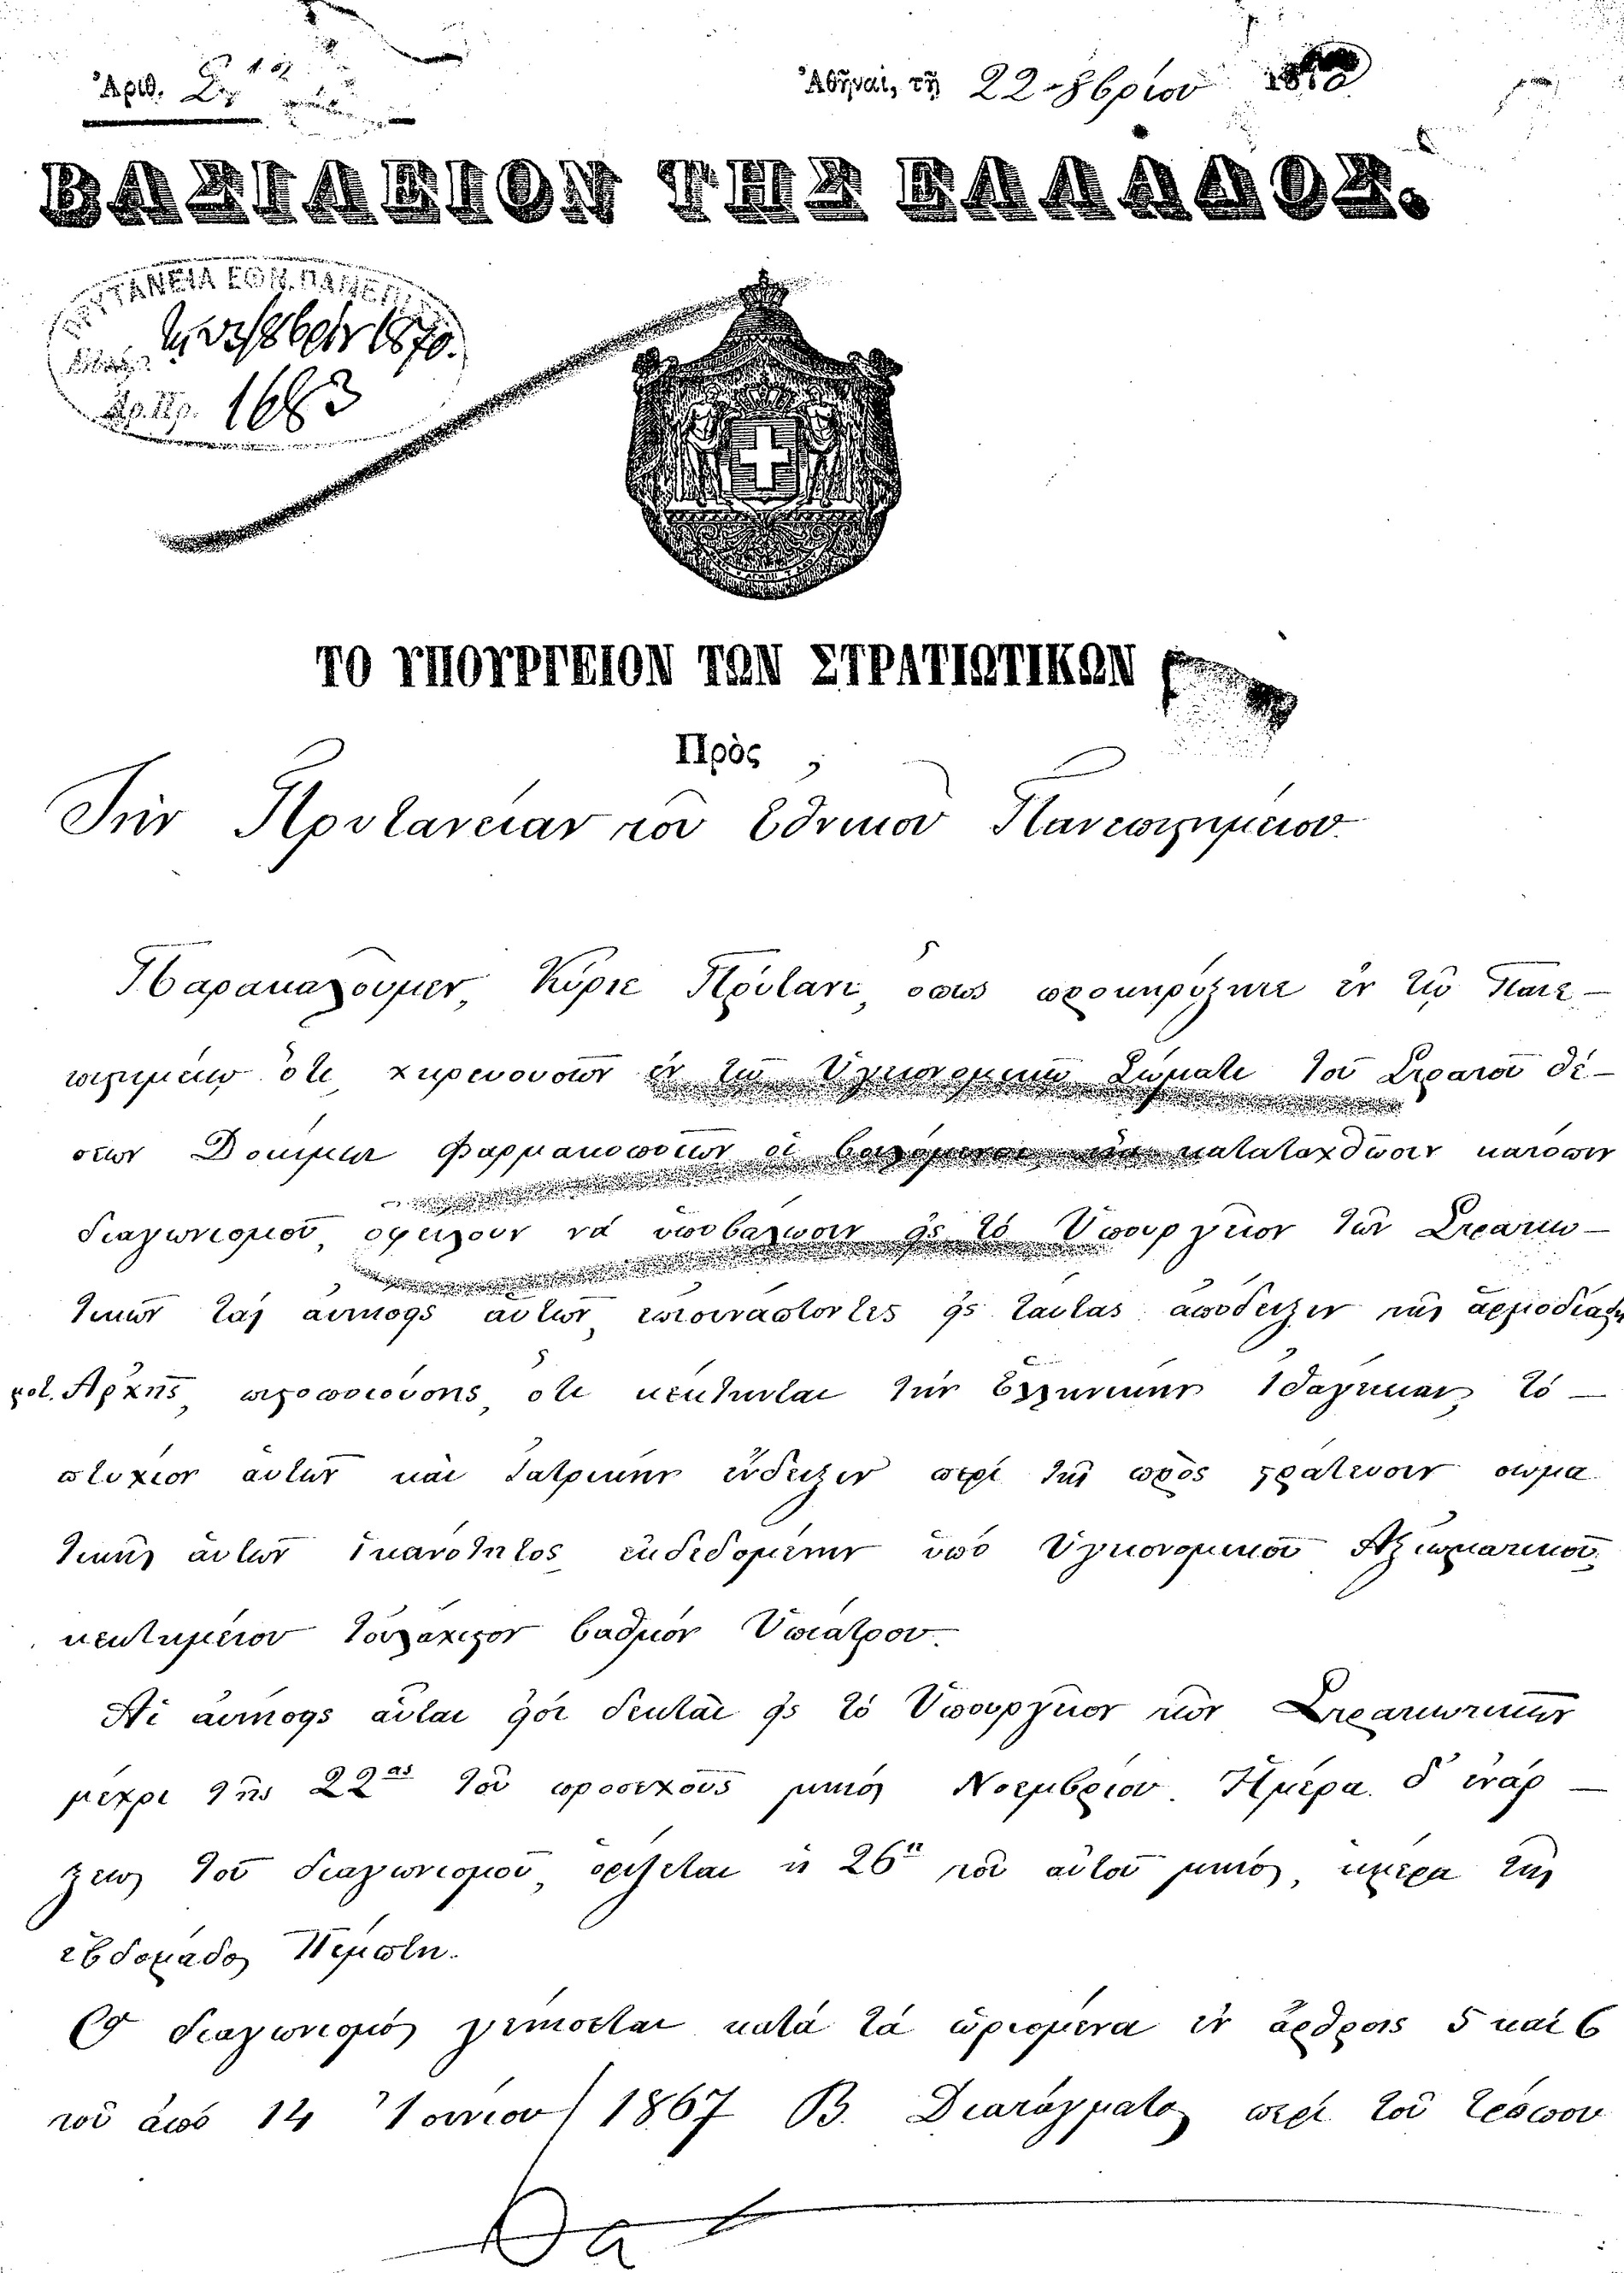 Ἀριθ.
Ἀθῆναι, τῇ 22 8βρίου 1870
ΒΑΣΙΛΕΙΟΝ ΤΗΣ ΕΛΛΑΔΟΣ.
ΠΡΥΤΑΝΕΙΑ ΕΘΝ. ΠΑΝΕΠΙΣ
1870.
Ἀρ. Πρ. 1683
ΤΟ ΥΠΟΥΡΓΕΙΟΝ ΤΩΝ ΣΤΡΑΤΙΩΤΙΚΩΝ
Πρὸς
Τὴν Πρυτανείαν τοῦ Ἐθνικοῦ Πανεπιστημείου.
Παρακαλοῦμεν, Κύριε Πρύτανι, ὅπως προκηρύξητε ἐν τῷ Πανε-
πιστημείῳ ὅτι, χηρευουσῶν ἐν τῷ Ὑγειονομικῷ Σώματι τοῦ Στρατοῦ θέ-
σεων Δοκίμων Φαρμακοποιῶν οἱ βουλόμενοι νὰ καταταχθῶσιν κατόπιν
διαγωνισμοῦ, ὀφείλουν νὰ ὑποβάλωσιν εἰς τὸ Ὑπουργεῖον τῶν Στρατιω-
τικῶν τὰς αἰτήσεις αὐτῶν, ἐπισυνάπτοντες εἰς ταύτας ἀπόδειξιν τῆς ἁρμοδίας
Ἀρχῆς, πιστοποιούσης, ὅτι κέκτηνται τὴν Ἑλληνικὴν Ἰθαγένειαν, τὸ
πτυχίον αὐτῶν καὶ Ἰατρικὴν ἔνδειξιν περὶ τῆς πρὸς στράτευσιν σωμα
τικῆς αὐτῶν ἱκανότητος, ἐκδεδομένην ὑπὸ Ὑγειονομικοῦ Ἀξιωματικοῦ,
κεκτημένου τοὐλάχιστον βαθμὸν Ὑπιάτρου.
Αἱ αἰτήσεις αὗται εἰσὶ δεκταὶ εἰς τὸ Ὑπουργεῖον τῶν Στρατιωτικῶν
μέχρι τῆς 22ας τοῦ προσεχοῦς μηνὸς Νοεμβρίου. Ἡμέρα δ' ἐνάρ-
ξεως τοῦ διαγωνισμοῦ, ὁρίζεται ἡ 26η τοῦ αὐτοῦ μηνός, ἡμέρα τῆς
ἑβδομάδος Πέμπτη.
Ὁ διαγωνισμὸς γενήσεται κατὰ τὰ ὡρισμένα ἐν ἄρθροις 5 καὶ 6
τοῦ ἀπὸ 14 Ἰουνίου 1867 Β. Διατάγματος περὶ τοῦ τρόπου